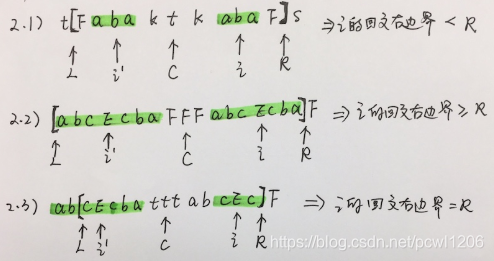 2.1) t[F aba k t k aba F]s ⇒ i的回文右边界 < R
L i' C i R
2.2) [abcEcba FFF abcEcba]F ⇒ i的回文右边界 ≥ R
L i' C i R
2.3) ab[cEcba ttt ab cEc]F ⇒ i的回文右边界 = R
L i' C i R
https://blog.csdn.net/pcwl1206